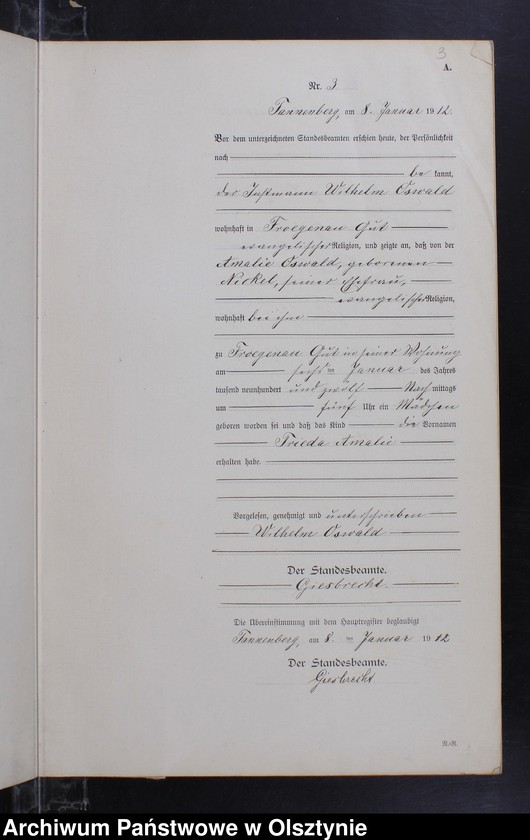 3
A.
Nr. 3
Tannenberg, am 8. Januar 1912.
Vor dem unterzeichneten Standesbeamten erschien heute, der Persönlichkeit
nach
be kannt,
der Instmann Wilhelm Oswald
wohnhaft in Froegenau Gut
evangelischer Religion, und zeigte an, daß von der
Amalie Oswald, geborenen
Nickel, seiner Ehefrau,
evangelischer Religion,
wohnhaft bei ihm
zu Froegenau Gut in seiner Wohnung
am sechsten Januar des Jahres
tausend neunhundert und zwölf Nach mittags
um fünf Uhr ein Mädchen
geboren worden sei und daß das Kind die Vornamen
Frieda Amalie
erhalten habe.
Vorgelesen, genehmigt und unterschrieben
Wilhelm Oswald
Der Standesbeamte.
Giesbrecht
Die Übereinstimmung mit dem Hauptregister beglaubigt
Tannenberg, am 8. ten Januar 1912
Der Standesbeamte.
Giesbrecht
Archiwum Państwowe w Olsztynie